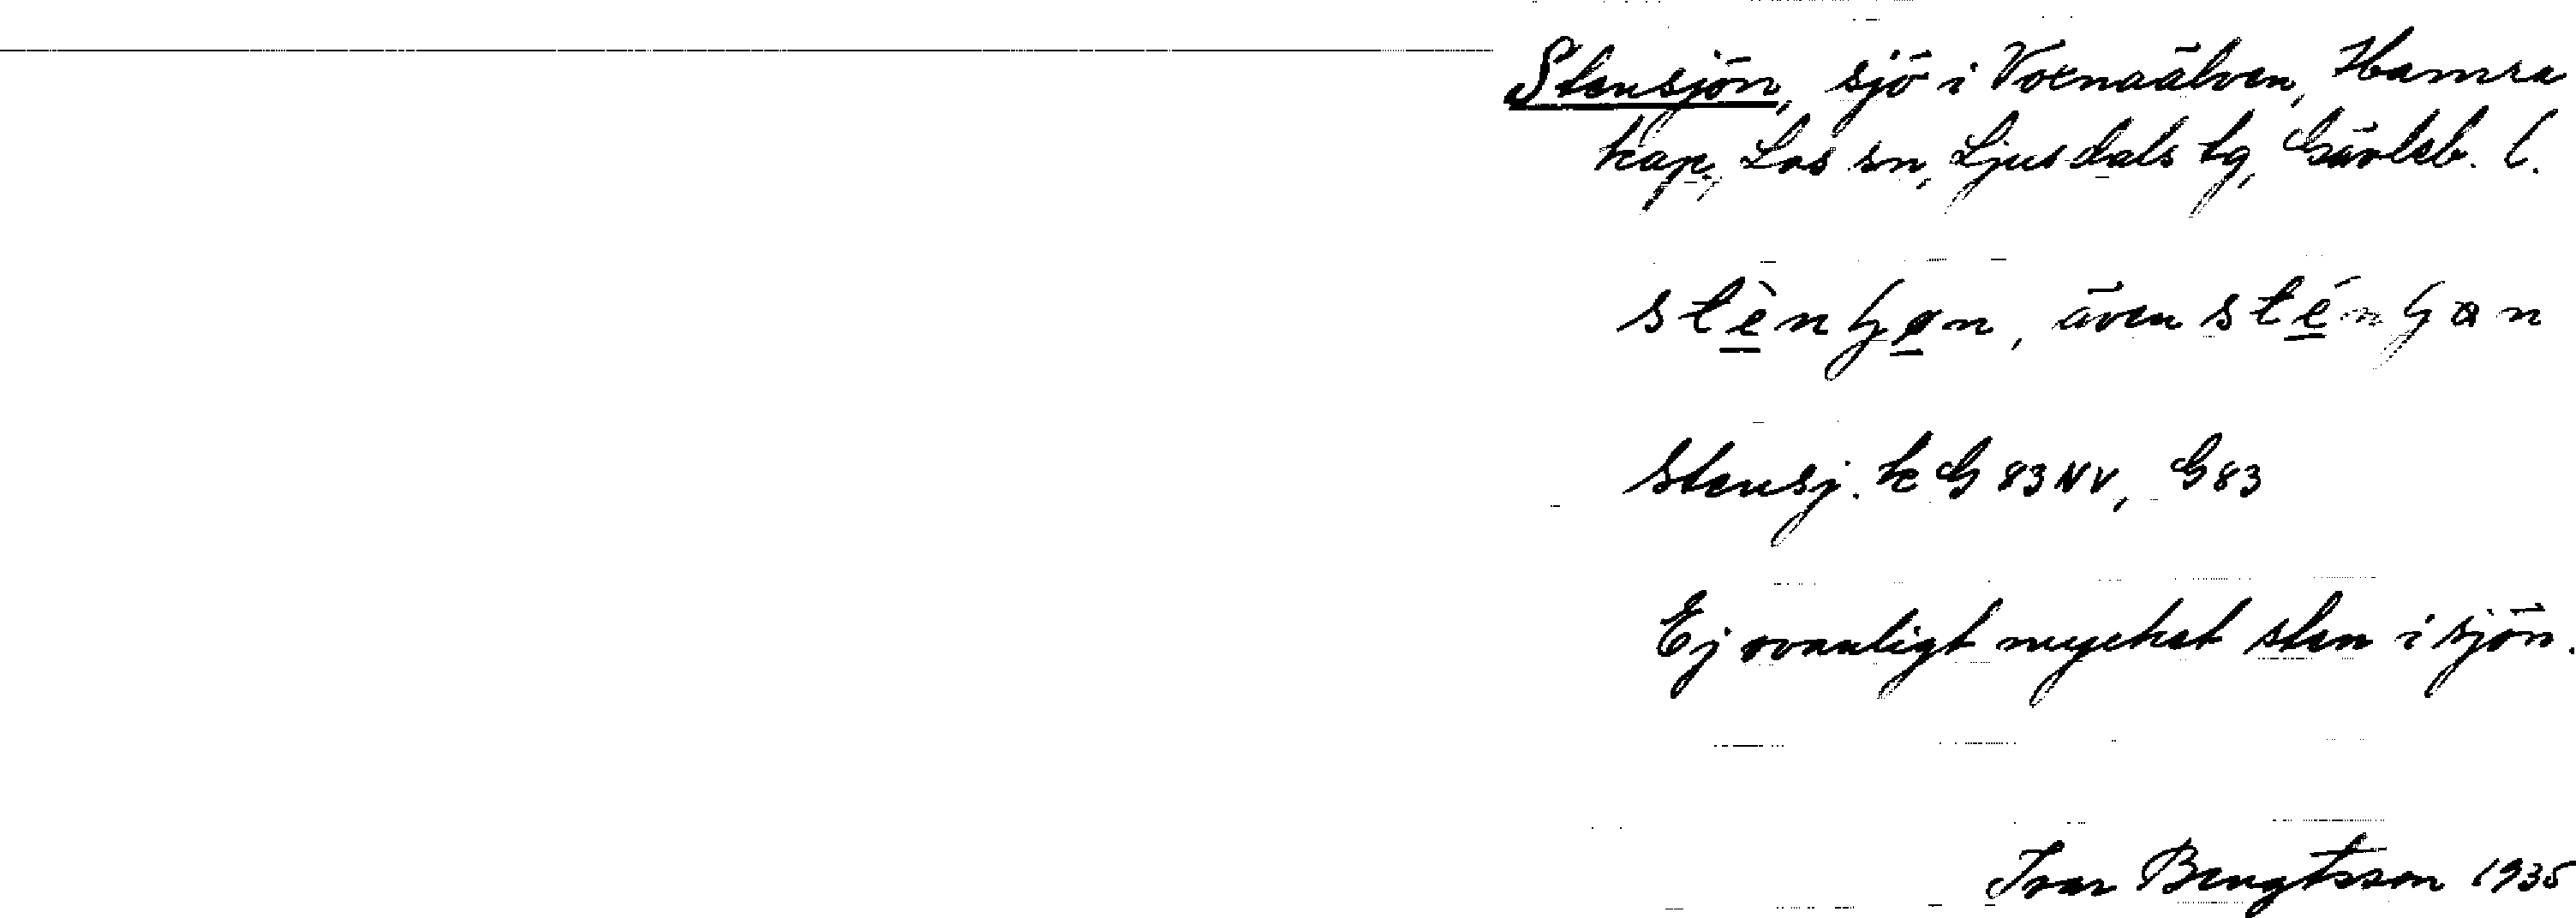 Stensjön, sjö i Voxnaälven, Hamra
kap, Los sn, Ljusdals tg, Gävleb. l.
även
Stensj. k G 83 NV, G 83
Ej ovanligt mycket sten i sjön.
Ivar Bengtsson 1935